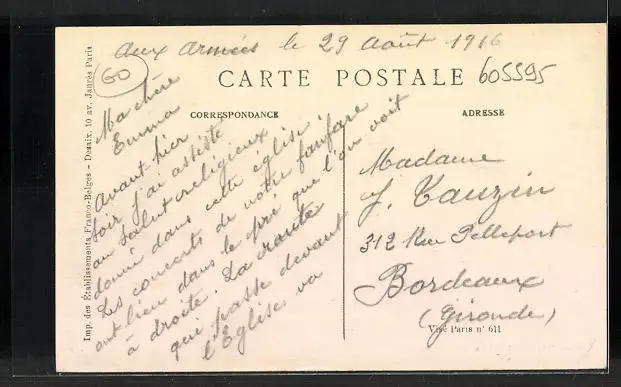 aux armées le 29 août 1916
60
CARTE POSTALE
605595
CORRESPONDANCE
ADRESSE
Ma chère
Emma
Avant hier
soir j'ai assisté
au salut religieux
donné dans cette église.
Les concerts de notre fanfare
ont lieu dans le pré que l'on voit
à droite. La route
qui passe devant
l'Eglise va
Madame
J. Tauzin
312 Rue Pelleport
Bordeaux
(Gironde)
Visé Paris n° 611
Imp. des Établissements Franco-Belges - Desaix, 10 av. Jaurès Paris